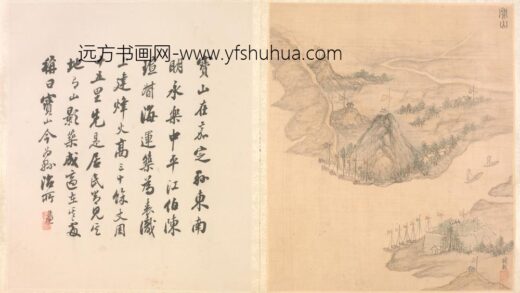 远方书画网-www.yfshuhua.com
寶山
寶山在嘉定縣東南
明永樂中平江伯陳
瑄督海運築為表識
上建烽火高三十餘丈周
十五里先是居民常見其
地有山影築成適在其處
稱曰寶山今為縣治所